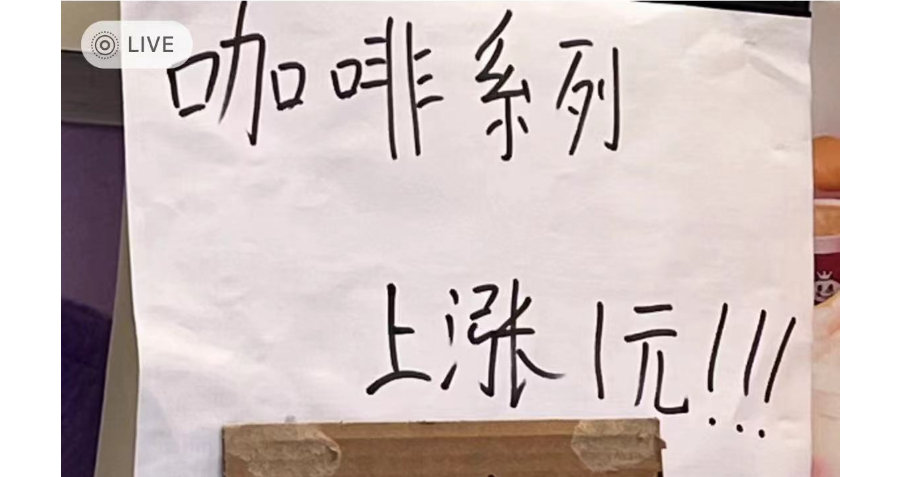 LIVE
咖啡系列
上涨1元!!!